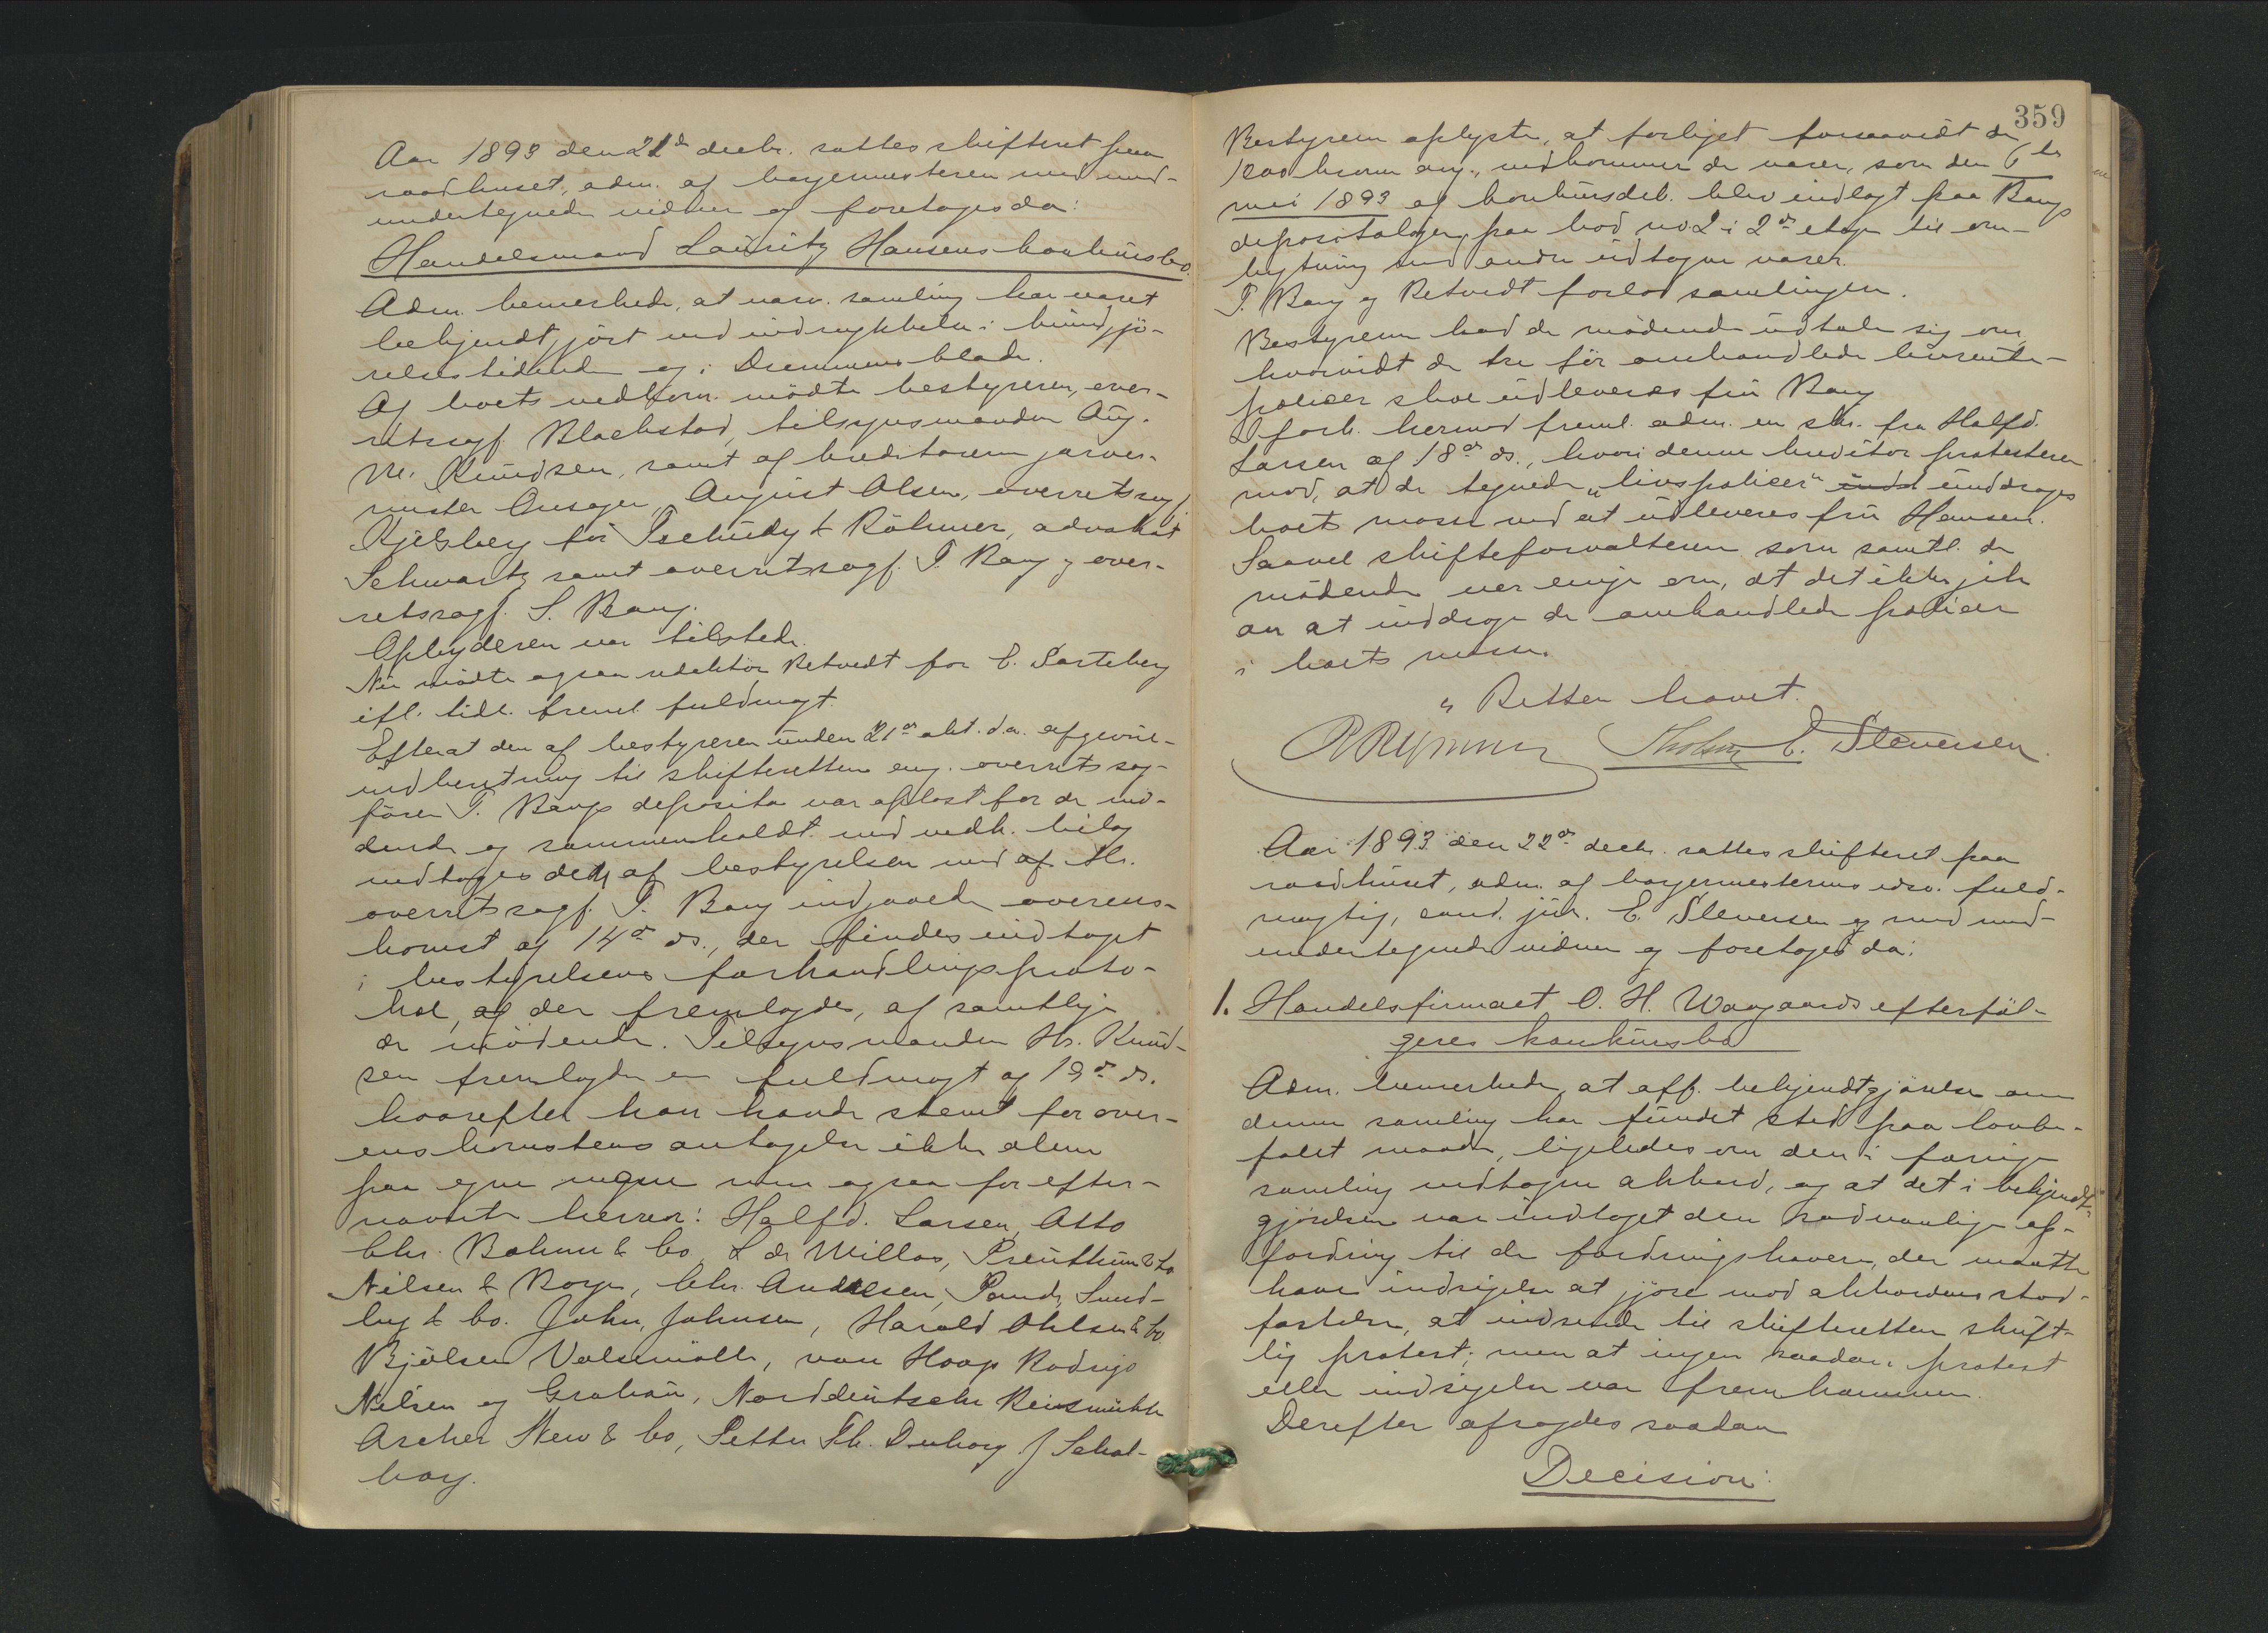 Aar 1893 den 21de decbr. sattes skifteret paa
raadhuset, adm. af borgermesteren med med-
undertegnede vidner og foretoges da:
Handelsmand Lauritz Hansens konkursbo.
Adm. bemerkede, at nærv. samling har været
bekjendtgjört ved indrykkelse i kundgjö-
relsestidende og i Drammens blade.
Af boets vedkom. mödte bestyreren, over-
retssagf. Blackstad, tilsynsmanden Aug.
M. Knudsen, samt af kreditorerne garver-
mester Ansager, August Olsen, overretssagf.
Kjelsberg för Tschudy & Röhmer, advokat
Schwartz samt overretssagf. T. Bang og over-
retssagf. S. Bang.
Opbyderen var tilstede.
Nu mödte ogsaa redaktör Retvedt for C. Sarteberg
ifl. tidl. freml. fuldmagt.
Efterat den af bestyreren under 21de okt. d.a. afgivne
indberetning til skifteretten ang. overretssag-
förer T. Bangs deposita var oplæst for de mö-
dende og sammenholdt med vedk. bilag
vedtoges den af bestyrelsen med af Hr.
overretssagf. T. Bang indgaaede overens-
komst af 14de ds., der findes indtaget
i bestyrelsens forhandlingsproto-
kol, og der fremlagdes, af samtlige
de mödende. Tilsynsmanden Hr. Knud-
sen fremlagde en fuldmagt af 19de ds.
hvorefter han havde stemt for over-
enskomstens antagelse ikke alene
paa egne vegne men ogsaa for efter-
nævnte herrer: Halfd. Larsen, Otto
Chr. Bohm & Co, L de Millas, Preuthun & Co
Nilsen & Borge, Chr. Andresen, Sund-
by & Co. John, Johnsen, Harald Ohlsen & Co
Bjölsen Valsemölle, van Hoop Rodrigo
Nilsen og Grohan, Norddeutsche Reismühle
Archer New & Co, Petter Th. Duborg J Schal-
borg.
359
Bestyreren oplyste, at forliget forsaavidt de
1200 kroner ang., vedkommer de varer, som den 6te
mai 1893 af konkursdeb. blev indlagt paa Bangs
depositalager, paa bod no 2 i 2den etage til om-
bytning med andre udtagne varer.
T. Bang og Retvedt forlod samlingen.
Bestyreren bad de mödende udtale sig om,
hvorvidt de tre för omhandlede livrente-
policer skal udleveres fru Bang
I forb. hermed freml. adm. en skr. fra Halfd.
Larsen af 18de ds., hvori denne kreditor protesterer
mod, at de tegnede „livspolicer“ undd unddrages
boets masse ved at udleveres fru Hansen.
Saavel skifteforvalteren som samtl. de
mödende var enige om, at det ikke gik
an at inddrage de omhandlede policer
i boets masse.
„ Retten hævet.
E. Steversen
Aar 1893 den 22de decbr. sattes skifteret paa
raadhuset, adm. af borgermesterens edsv. fuld-
mægtig, cand. jur. E. Steversen og med med-
undertegnede vidner og foretoges da:
1. Handelsfirmaet O. H. Waagaards efterföl-
geres konkursbo
Adm. bemerkede, at off. bekjendtgjörelse om
denne samling har fundet sted paa lovbe-
falet maade, ligeledes om den i forrige
samling vedtagne akkord, og at det i bekjendt-
gjörelsen var indtaget den sædvanlige op-
fordring til de fordringshavere, der maatte
have indsigelse at gjöre mod akkordens stad-
fæstelse, at indsende til skifteretten skrift-
lig protest; men at ingen saadan protest
eller indsigelse var fremkommen.
Derefter afsagdes saadan
Decision: